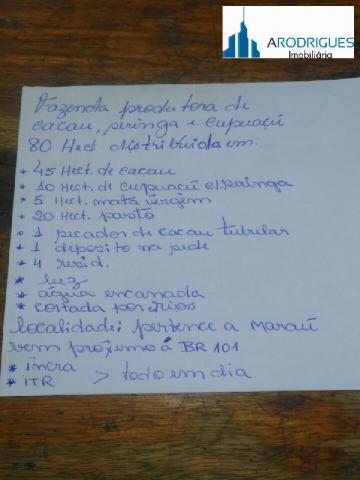 ARODRIGUES
Imobiliária
Fazenda produtora de
cacau, siringa e cupuaçú
80 Hect distribuida em:
* 45 Hect. de cacau
* 10 Hect. de cupuaçú c/siringa
* 5 Hect. mata virgem
* 20 Hect. pasto
* 1 secador de cacau tubular
* 1 deposito na sede
* 4 resid.
* luz
* água encanada
* cortada por rios
localidade: pertence a Maraú
bem próximo á BR 101
* incra
* ITR > todo em dia